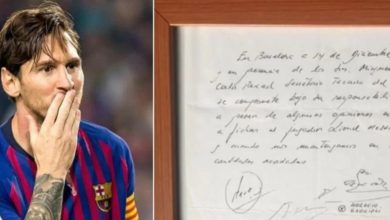 En Barcelona a 14 de diciembre
y en presencia de los Srs. Minguella
Carlos Rexach Secretario Técnico del
se compromete bajo su responsabilidad
a pesar de algunas opiniones en
a fichar al jugador Lionel Messi
y cuando nos mantengamos en
cantidades acordadas
HORACIO
GAGGIOLI